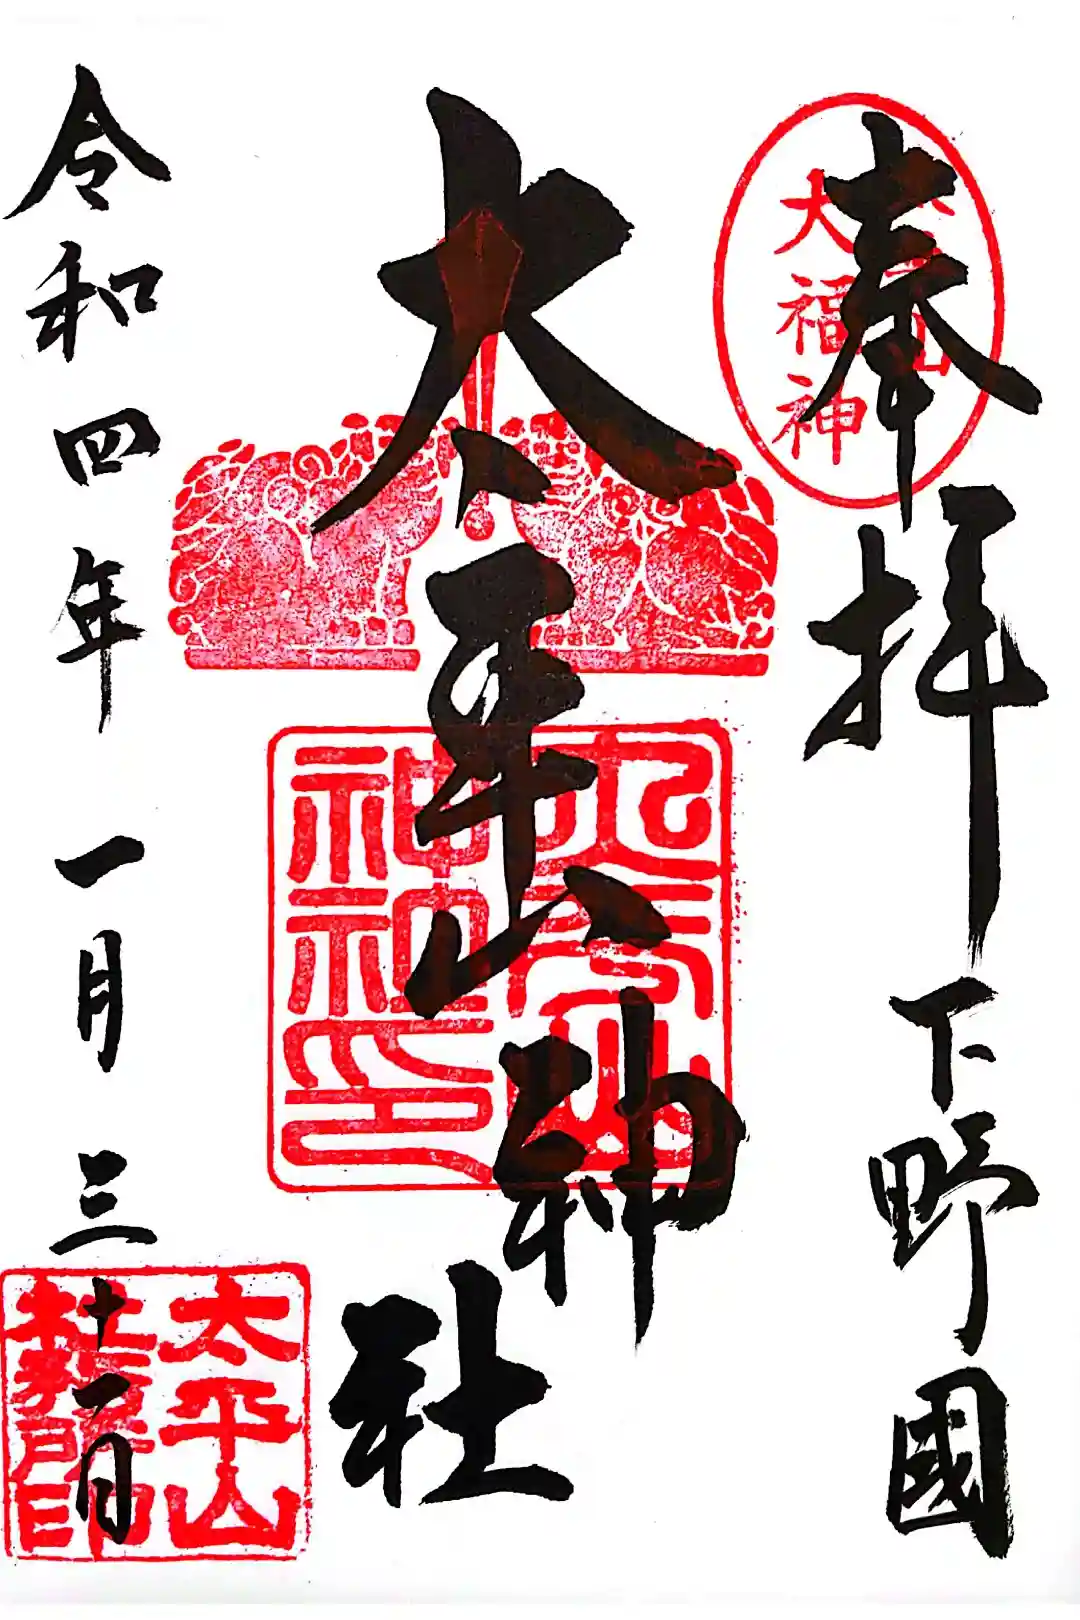 奉拝 下野國
太平山神社
令和四年一月三十一日
大福神
太平山神社印
太平山
社務所印